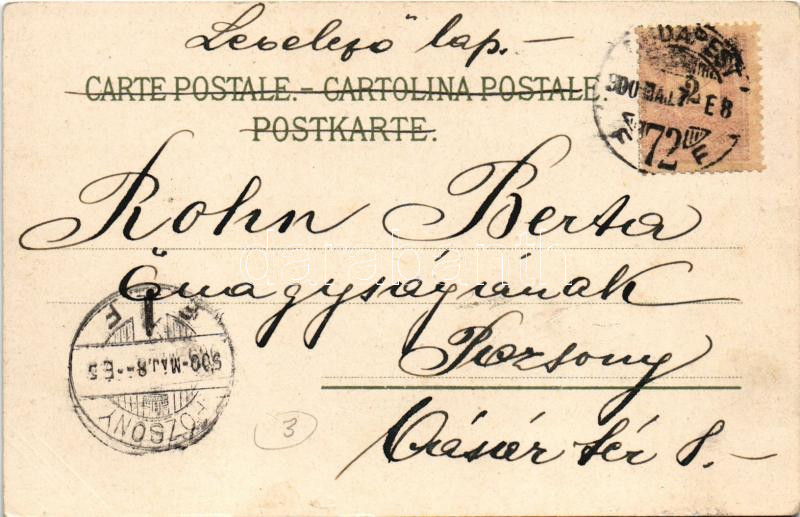 Levelező lap.-
CARTE POSTALE.- CARTOLINA POSTALE.
POSTKARTE.
BUDAPEST
900 MÁJ. 7. E 8
72
Rohn Berta
darabanth
Őnagyságának
Pozsony
Vásár tér 8.-
900-MÁJ.8-E5
POZSONY
3